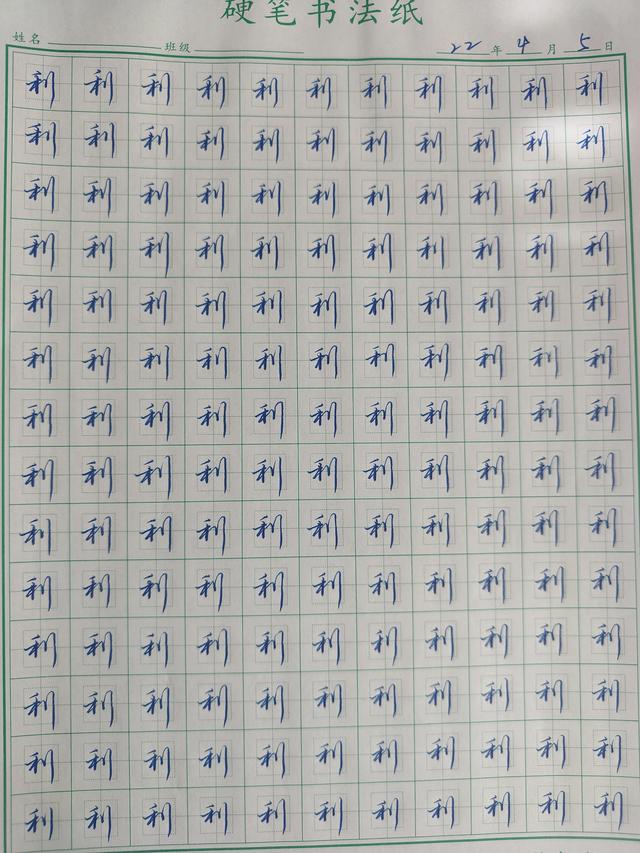 硬笔书法纸
姓名 班级 22年4月5日
利利利利利利利利利利利
利利利利利利利利利利利
利利利利利利利利利利利
利利利利利利利利利利利
利利利利利利利利利利利
利利利利利利利利利利利
利利利利利利利利利利利
利利利利利利利利利利利
利利利利利利利利利利利
利利利利利利利利利利利
利利利利利利利利利利利
利利利利利利利利利利利
利利利利利利利利利利利
利利利利利利利利利利利